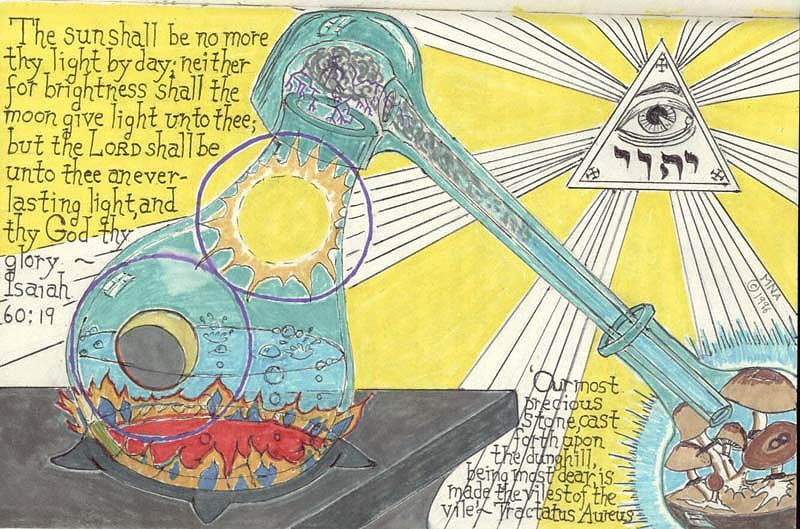 The sun shall be no more
thy light by day; neither
for brightness shall the
moon give light unto thee;
but the LORD shall be
unto thee an ever-
lasting light, and
thy God thy
glory. ~
Isaiah
60:19
MNA
© 1996
'Our most
precious
stone, cast
forth upon
the dunghill,
being most dear is
made the vilest of the
vile' ~ Tractatus Aureus